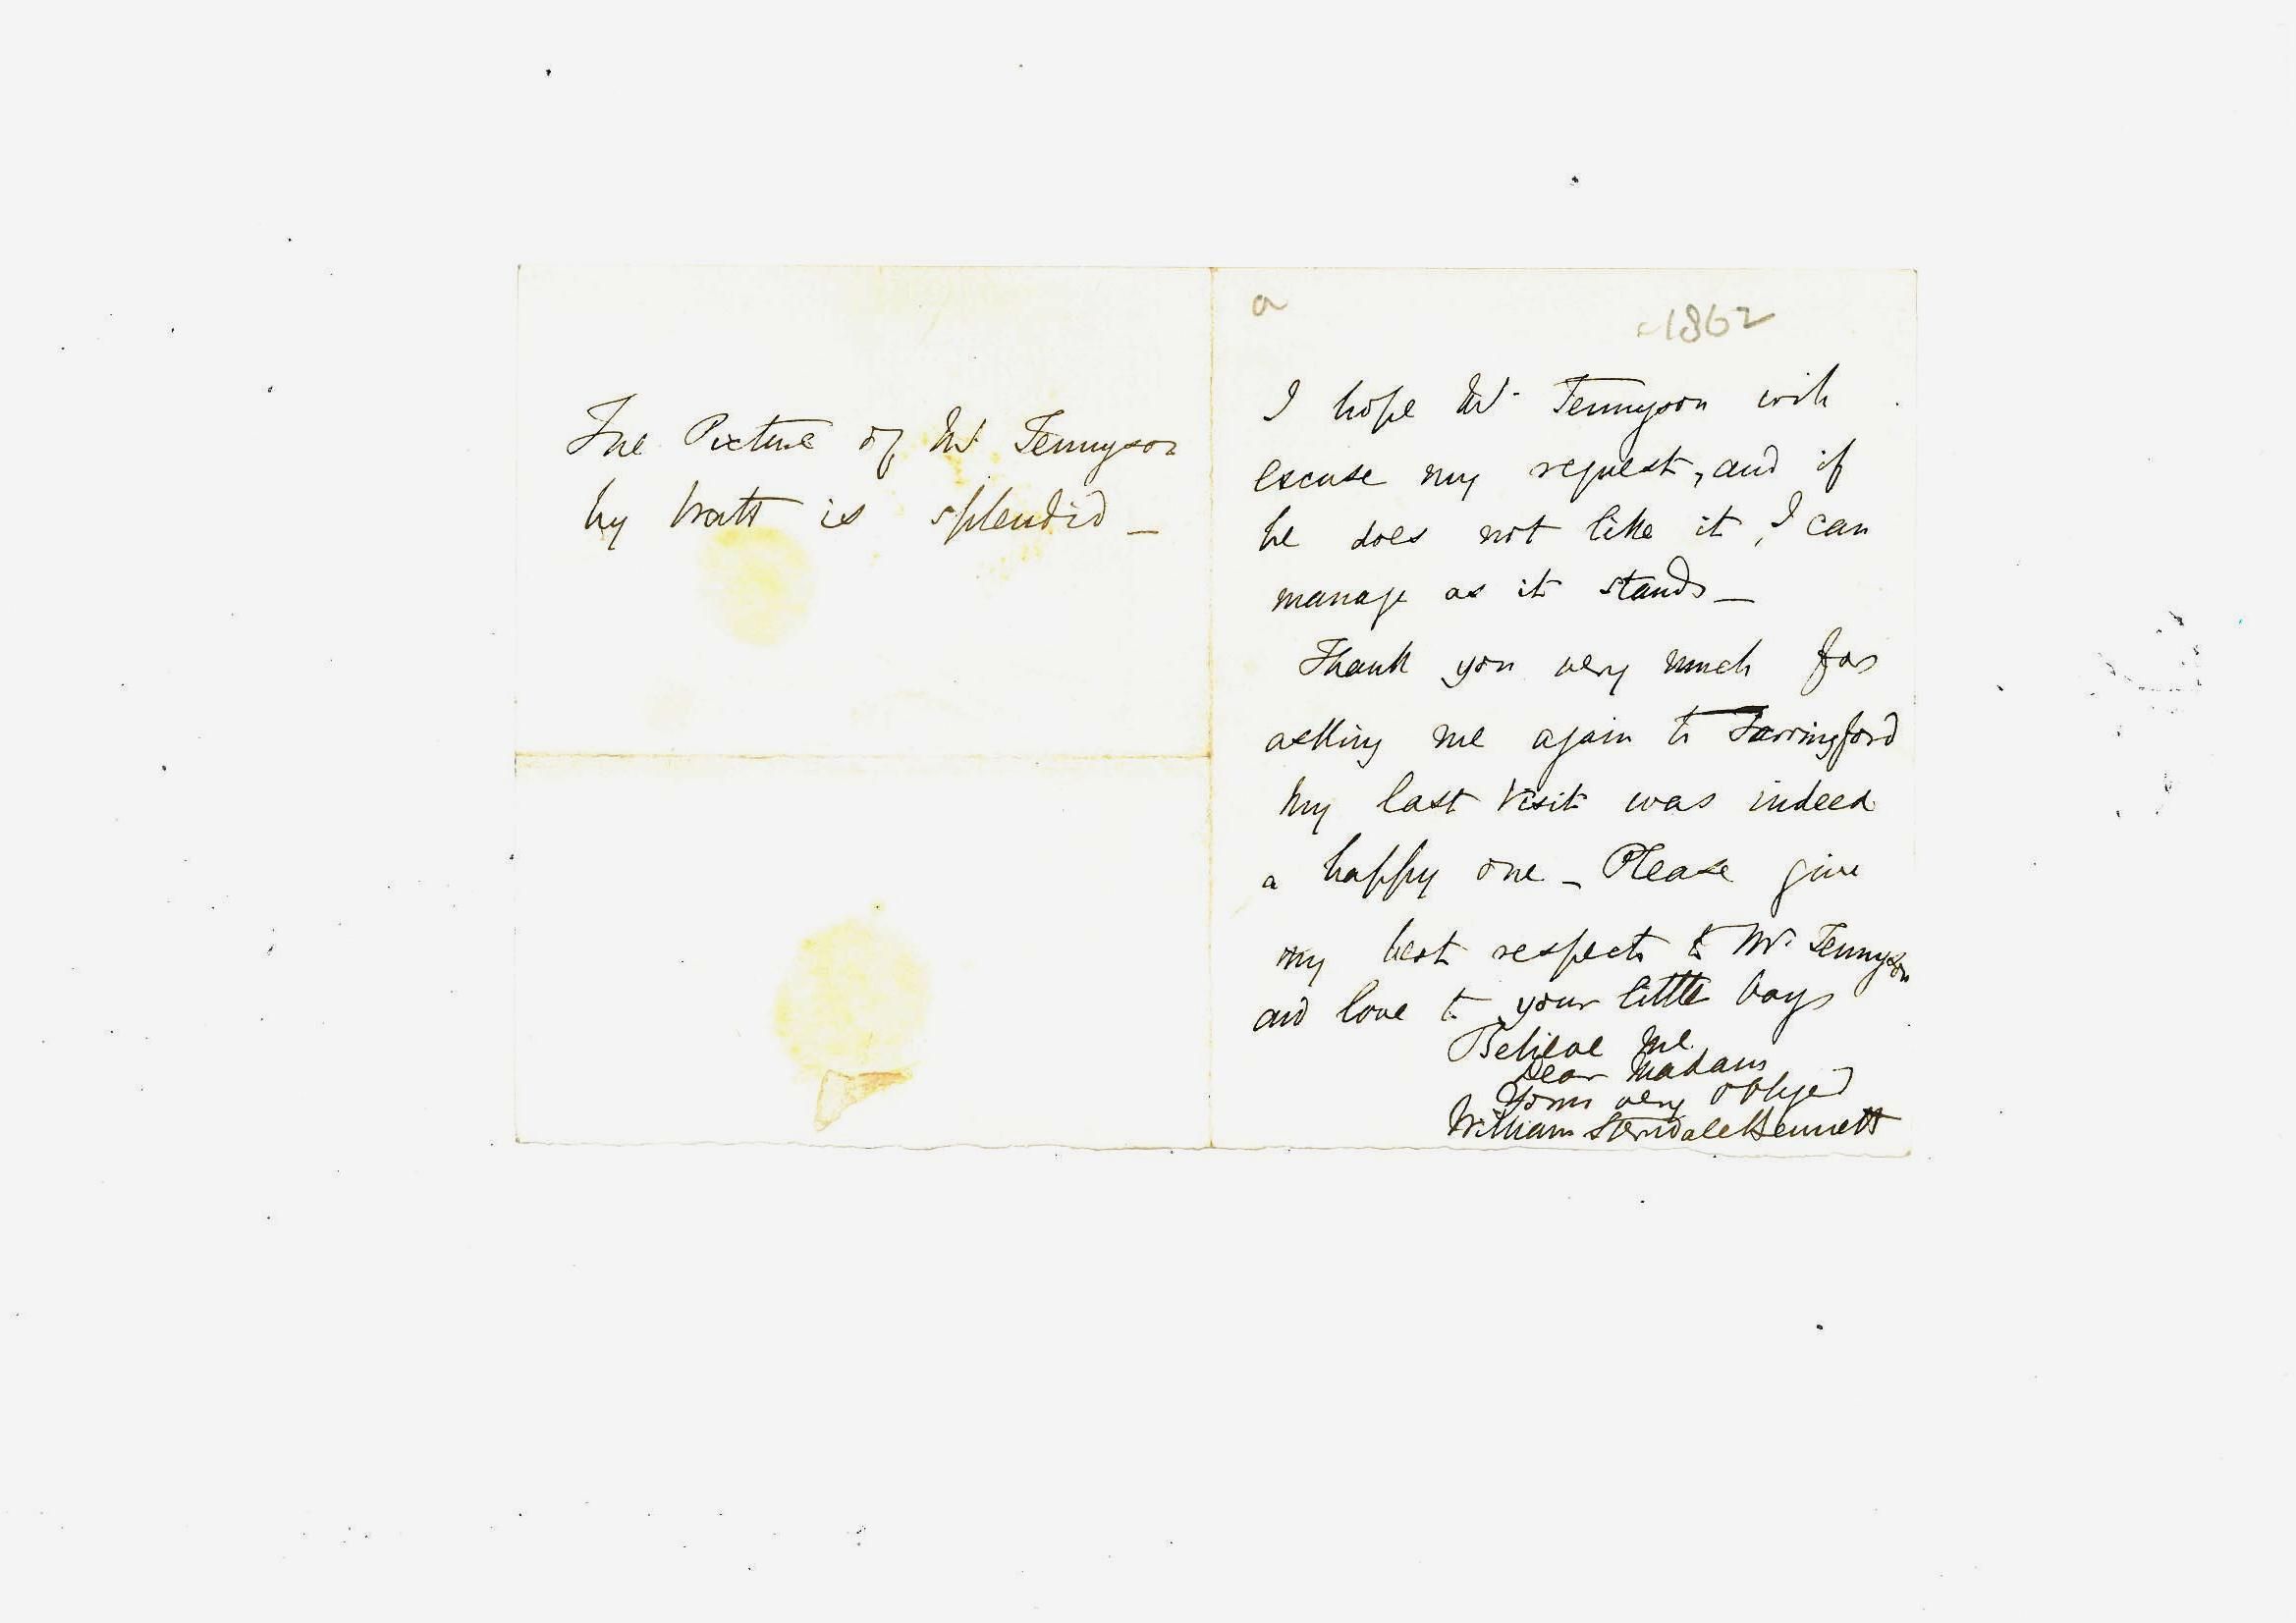 The Picture of Mr Tennyson
by Watts is splendid _
a
1862
I hope Mr. Tennyson will
excuse my request, and if
he does not like it, I can
manage as it stands _
Thank you very much for
asking me again to Farringford
My last visit was indeed
a happy one _ Please give
my best respects to Mr. Tennyson
and love to your little boys
Believe me
Dear Madam
Yours very obliged
William Sterndale Bennett